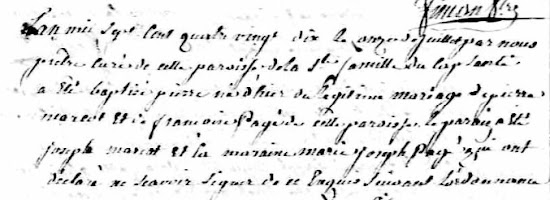 L'an mil Sept Cent quatre vingt dix le onze de juillet par nous
prêtre curé de cette paroisse de la Ste famille du Cap Santé
a Eté baptisé pierre né d'hier du legitime mariage de pierre
marcot Et de françoise Pagé de cette paroisse le parain a Eté
joseph marcot Et la maraine marie joseph Pagé qui ont
déclaré ne scavoir signer de ce Enquis suivant l'ordonnance